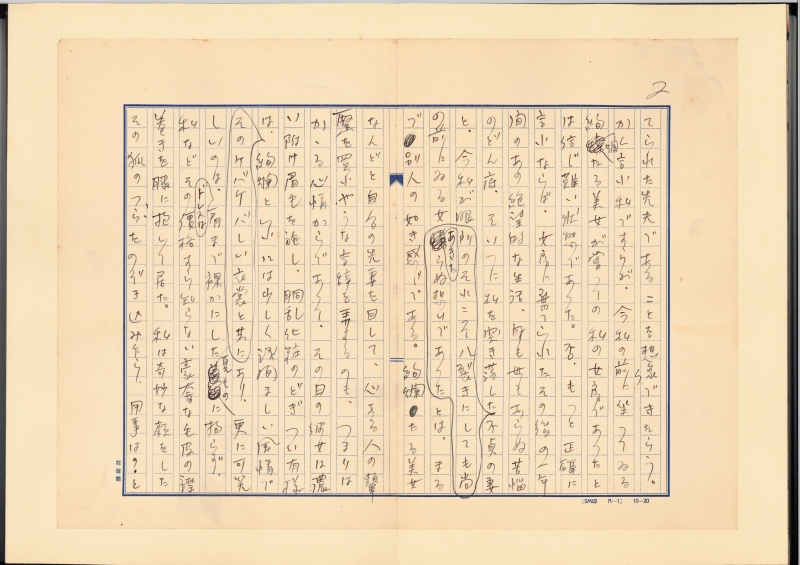 2
てられた先夫であることを想像できたらう。
かく言ふ私ですらが、今私の前に坐つてゐる
絢爛たる美女が嘗つての私の女房であつたと
は信じ難い状態であつた。否、もつと正確に
言ふならば、女房に棄てられたその後の一年
間のあの絶望的な生活、身も世もあらぬ苦悩
のどん底、そいつに私を突き落した不貞の妻
と、今私が眼前のそれこそ八裂きにしても尚
あきたらぬ想ひであつたとは、まる
の前にゐる女
で別人の如き感じである。絢爛たる美女
なんどと自分の先妻を目して、心ある人の顰
蹙を買ふやうな言辞を弄するのも、つまりは
かゝる心情からであつて、その日の彼女は濃
い附け眉毛を施し、胴乱化粧のどぎつい有様
は、絢爛と いふには少しく浅間ましい風情で
そのケバケバしい衣裳と共にあり、更に可笑
しいのは、肩まで裸かにした
夏もの
ドレスは
に拘らず、
私などその価格すら知らない豪奢な毛皮の襟
巻きを膝に抱いて居た。私は奇妙な顔をした
その狐のつらをのぞき込みたり、用事は？と
(SM印 M-1) 10-20